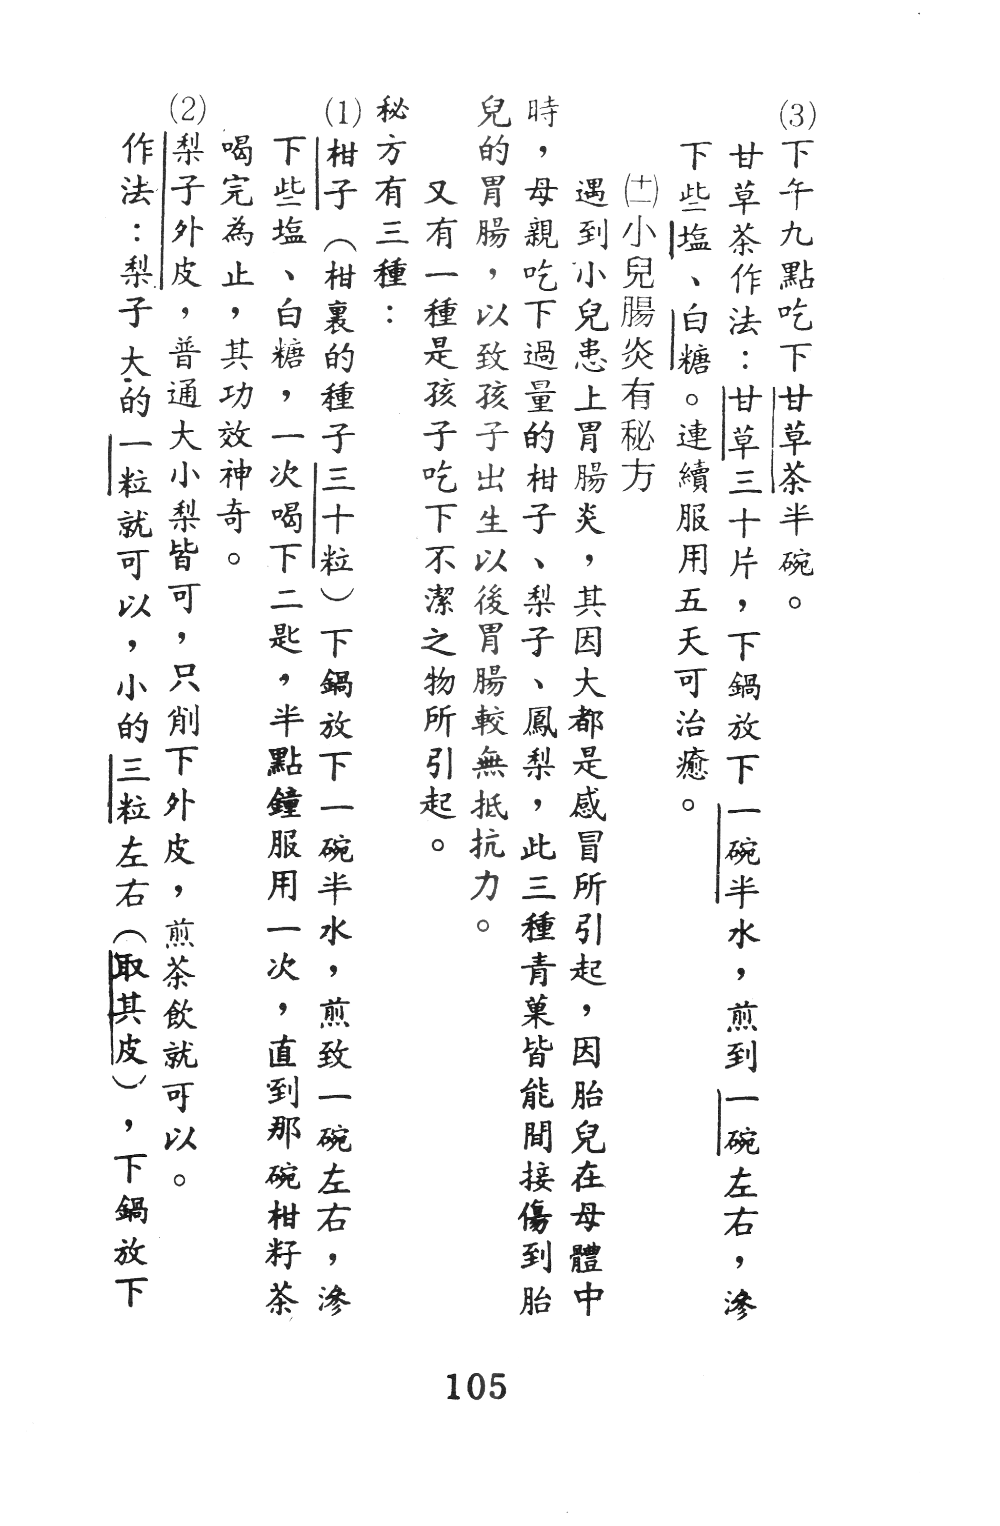 (3)下午九點吃下甘草茶半碗。
甘草茶作法：甘草三十片，下鍋放下一碗半水，煎到一碗左右，滲
下些塩、白糖。連續服用五天可治癒。
(十一)小兒腸炎有秘方
遇到小兒患上胃腸炎，其因大都是感冒所引起，因胎兒在母體中
時，母親吃下過量的柑子、梨子、鳳梨，此三種青菓皆能間接傷到胎
兒的胃腸，以致孩子出生以後胃腸較無抵抗力。
又有一種是孩子吃下不潔之物所引起。
秘方有三種：
(1)柑子（柑裏的種子三十粒）下鍋放下一碗半水，煎致一碗左右，滲
下些塩、白糖，一次喝下二匙，半點鐘服用一次，直到那碗柑籽茶
喝完為止，其功效神奇。
(2)梨子外皮，普通大小梨皆可，只削下外皮，煎茶飲就可以。
作法：梨子大的一粒就可以，小的三粒左右（取其皮），下鍋放下
105